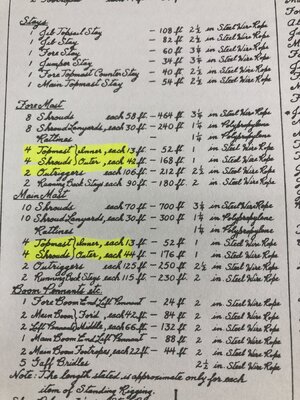 Stays
1 Jib Topsail Stay – 108 ft 2½ in Steel Wire Rope
1 Jib Stay – 82 ft 2½ in Steel Wire Rope
1 Fore Stay – 60 ft 3¼ in Steel Wire Rope
1 Jumper Stay – 34 ft 3¼ in Steel Wire Rope
1 Fore Topmast Counter Stay – 40 ft 2 in Steel Wire Rope
1 Main Topmast Stay – 54 ft 2 in Steel Wire Rope
Fore Mast
8 Shrouds each 58 ft – 464 ft 3¼ in Steel Wire Rope
8 Shroud Lanyards, each 30 ft – 240 ft 1¼ in Polypropylene
Ratlines 1¼ in Polypropylene
4 Topmast Inner, each 13 ft – 52 ft 1 in Steel Wire Rope
4 Shrouds Outer, each 42 ft – 168 ft 1 in Steel Wire Rope
2 Outriggers each 106 ft – 212 ft 2½ in Steel Wire Rope
2 Running Back Stays each 90 ft – 180 ft 2 in Steel Wire Rope
Main Mast
10 Shrouds each 70 ft – 700 ft 3¼ in Steel Wire Rope
10 Shroud Lanyards, each 30 ft – 300 ft 1¼ in Polypropylene
Ratlines 1¼ in Polypropylene
4 Topmast Inner, each 13 ft – 52 ft 1 in Steel Wire Rope
4 Shrouds Outer, each 44 ft – 176 ft 1 in Steel Wire Rope
2 Outriggers each 125 ft – 250 ft 2½ in Steel Wire Rope
2 Running Back Stays each 115 ft – 230 ft 2 in Steel Wire Rope
Boom Pennants etc.
1 Fore Boom End Lift Pennant – 24 ft 2 in Steel Wire Rope
2 Main Boom, Each 42 ft – 84 ft 2 in Steel Wire Rope
2 Lift Pennants, Middle, each 66 ft – 132 ft 2 in Steel Wire Rope
1 Main Boom End Lift Pennant – 88 ft 2 in Steel Wire Rope
2 Main Boom Footropes, each 22 ft – 44 ft 2 in Steel Wire Rope
5 Gaff Bridles 2½ in Steel Wire Rope
Note: The length stated is approximate only for each
item of Standing Rigging.